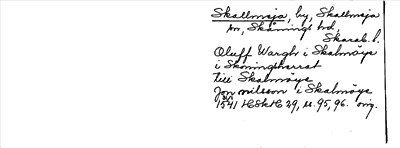 Skallmeja, by, Skallmeja
sn, Skånings hd
Skarab. l.
Oluff Wargh i Skalmöye
i Skåningsherrat
Till Skalmöye
Jon nilsson i Skalmöye
1541 HSkH 29, s. 95, 96. orig.